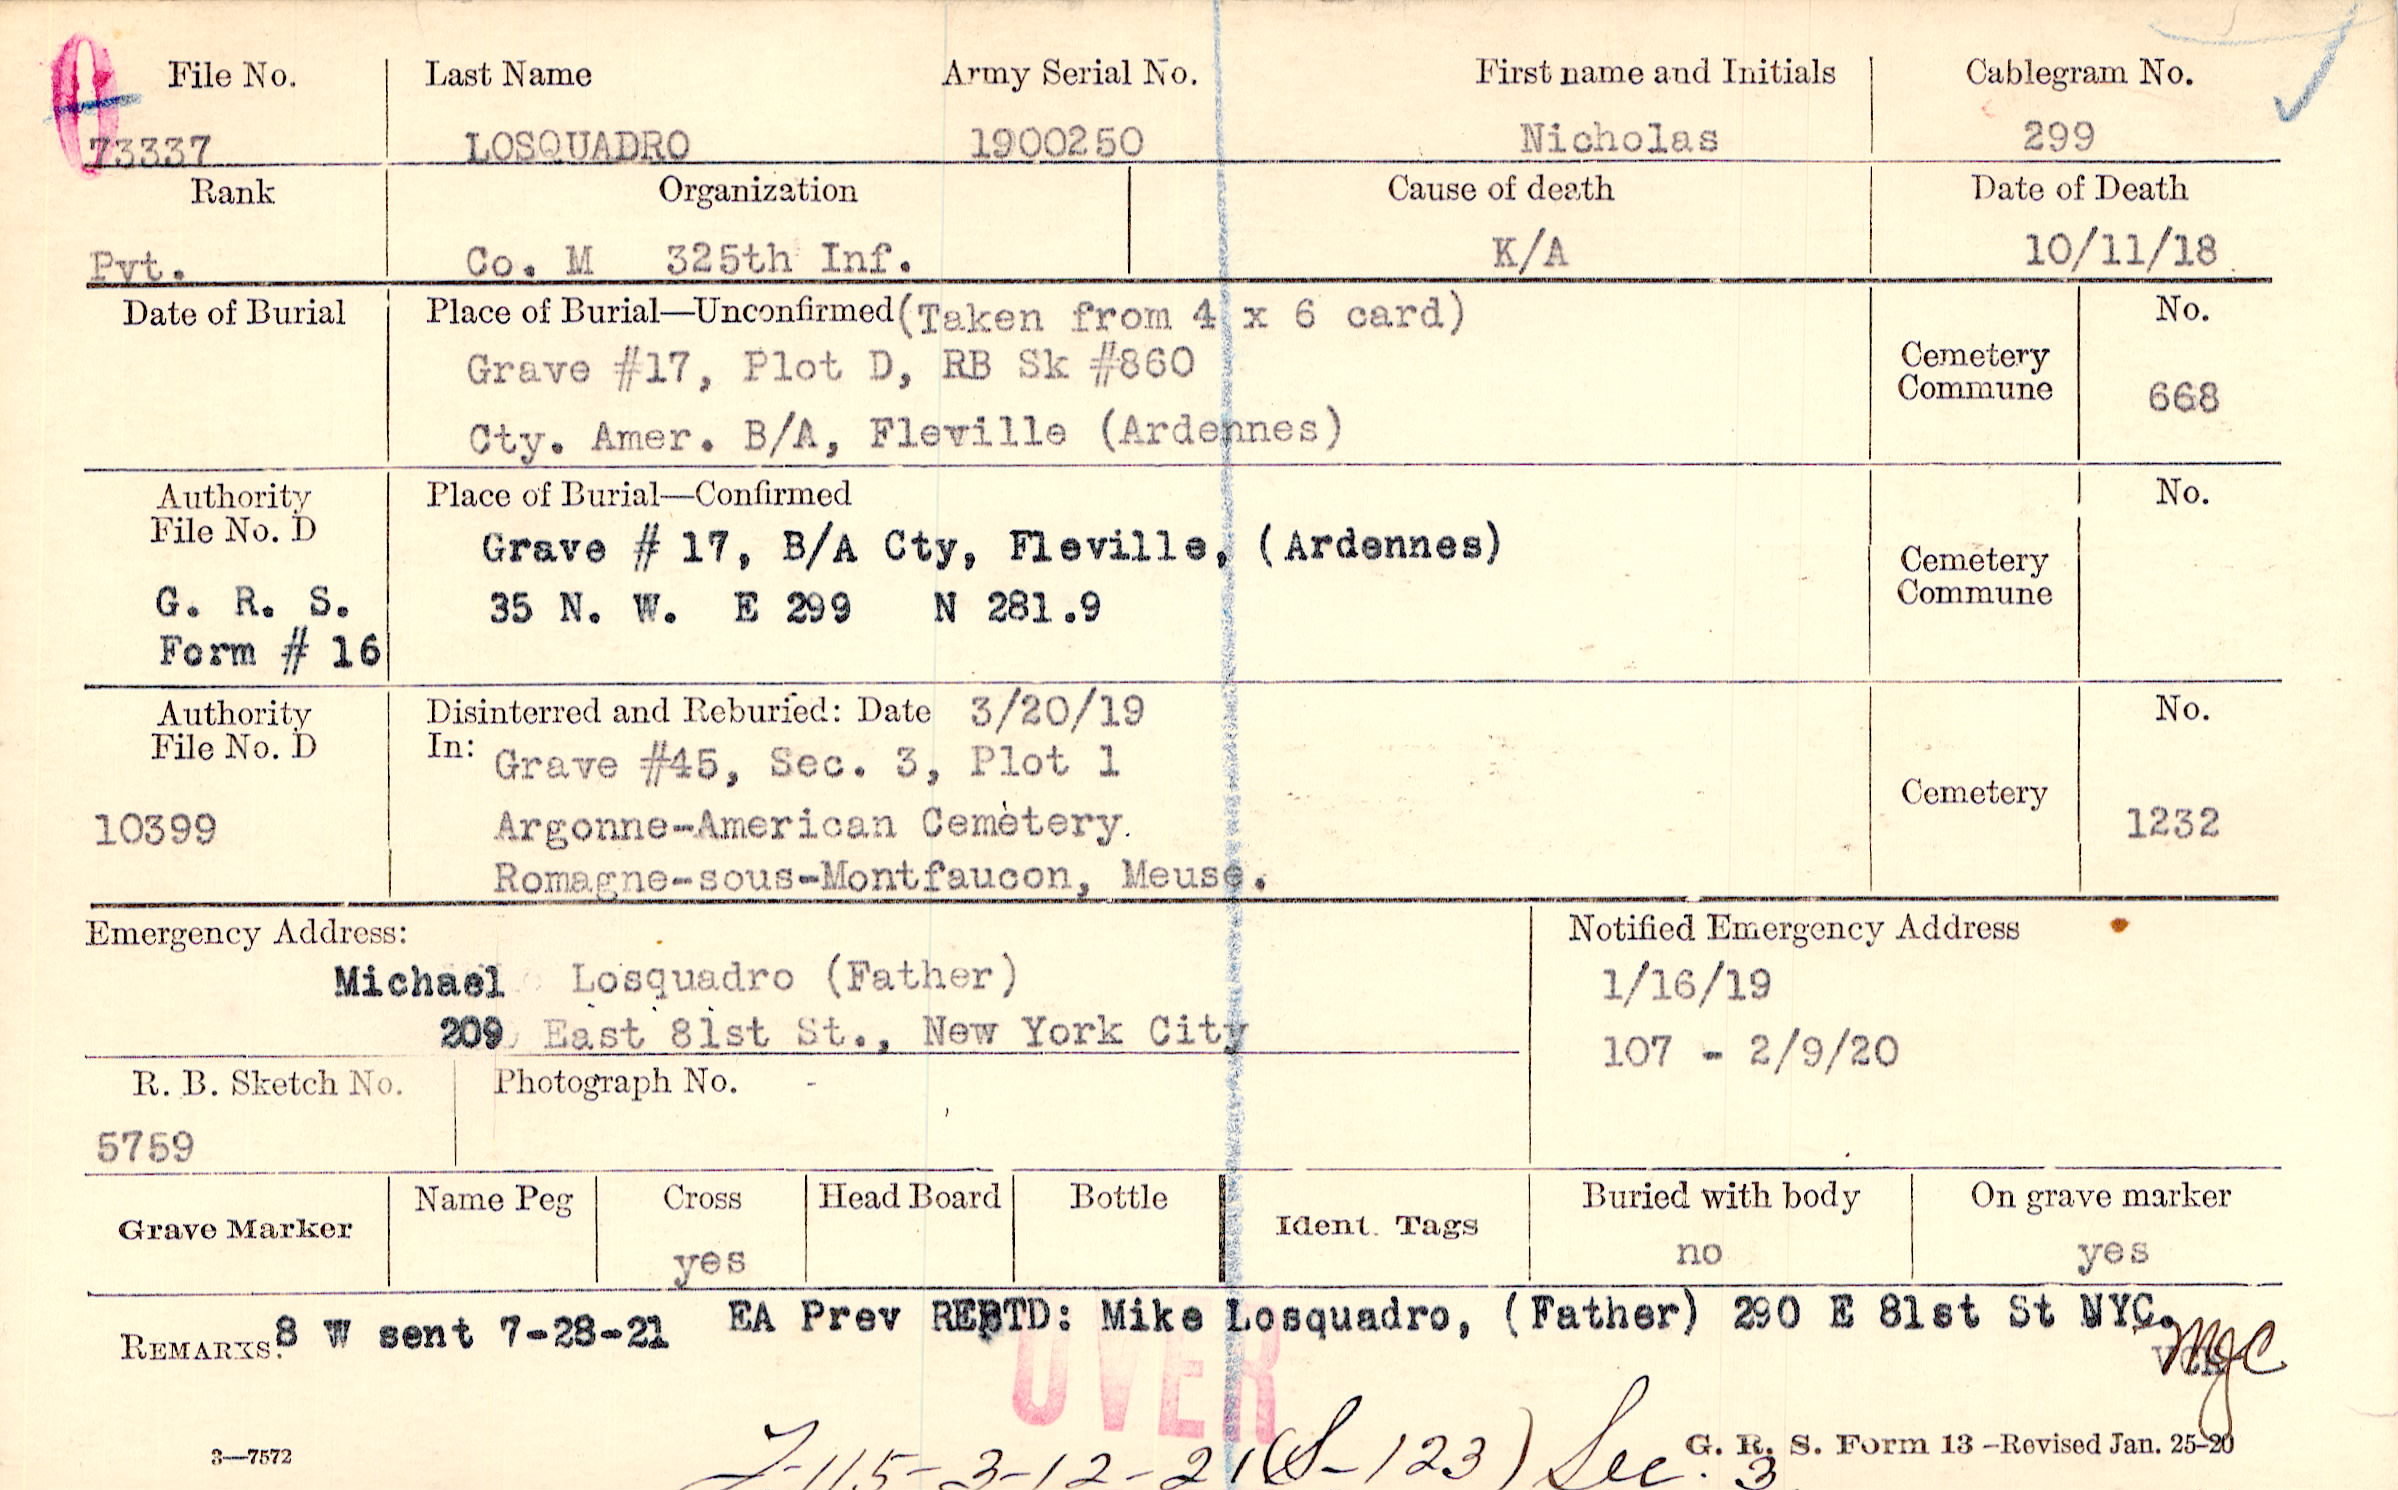 File No. Last Name Army Serial No. First name and Initials Cablegram No.
73337 LOSQUADRO 1900250 Nicholas 299
Rank Organization Cause of death Date of Death
Pvt. Co. M 325th Inf. K/A 10/11/18
Date of Burial Place of Burial—Unconfirmed (Taken from 4 x 6 card) No.
Grave #17, Plot D, RB Sk #860 Cemetery
Commune 668
Cty. Amer. B/A, Fleville (Ardennes)
Authority Place of Burial—Confirmed No.
File No. D
Grave # 17, B/A Cty, Fleville, (Ardennes) Cemetery
G. R. S. 35 N. W. E 299 N 281.9 Commune
Form # 16
Authority Disinterred and Reburied: Date 3/20/19 No.
File No. D In: Grave #45, Sec. 3, Plot 1
Cemetery
10399 Argonne-American Cemetery. 1232
Romagne-sous-Montfaucon, Meuse.
Emergency Address: Notified Emergency Address
Michael Losquadro (Father) 1/16/19
209 East 81st St., New York City 107 - 2/9/20
R. B. Sketch No. Photograph No. -
5759
Grave Marker Name Peg Cross Head Board Bottle Ident. Tags Buried with body On grave marker
yes no yes
REMARKS. 8 W sent 7-28-21 EA Prev REPTD: Mike Losquadro, (Father) 290 E 81st St NYC.
MJC
OVER
3—7572 G. R. S. Form 13 -Revised Jan. 25-20
-115-3-12-21 (S-123) Sec. 3